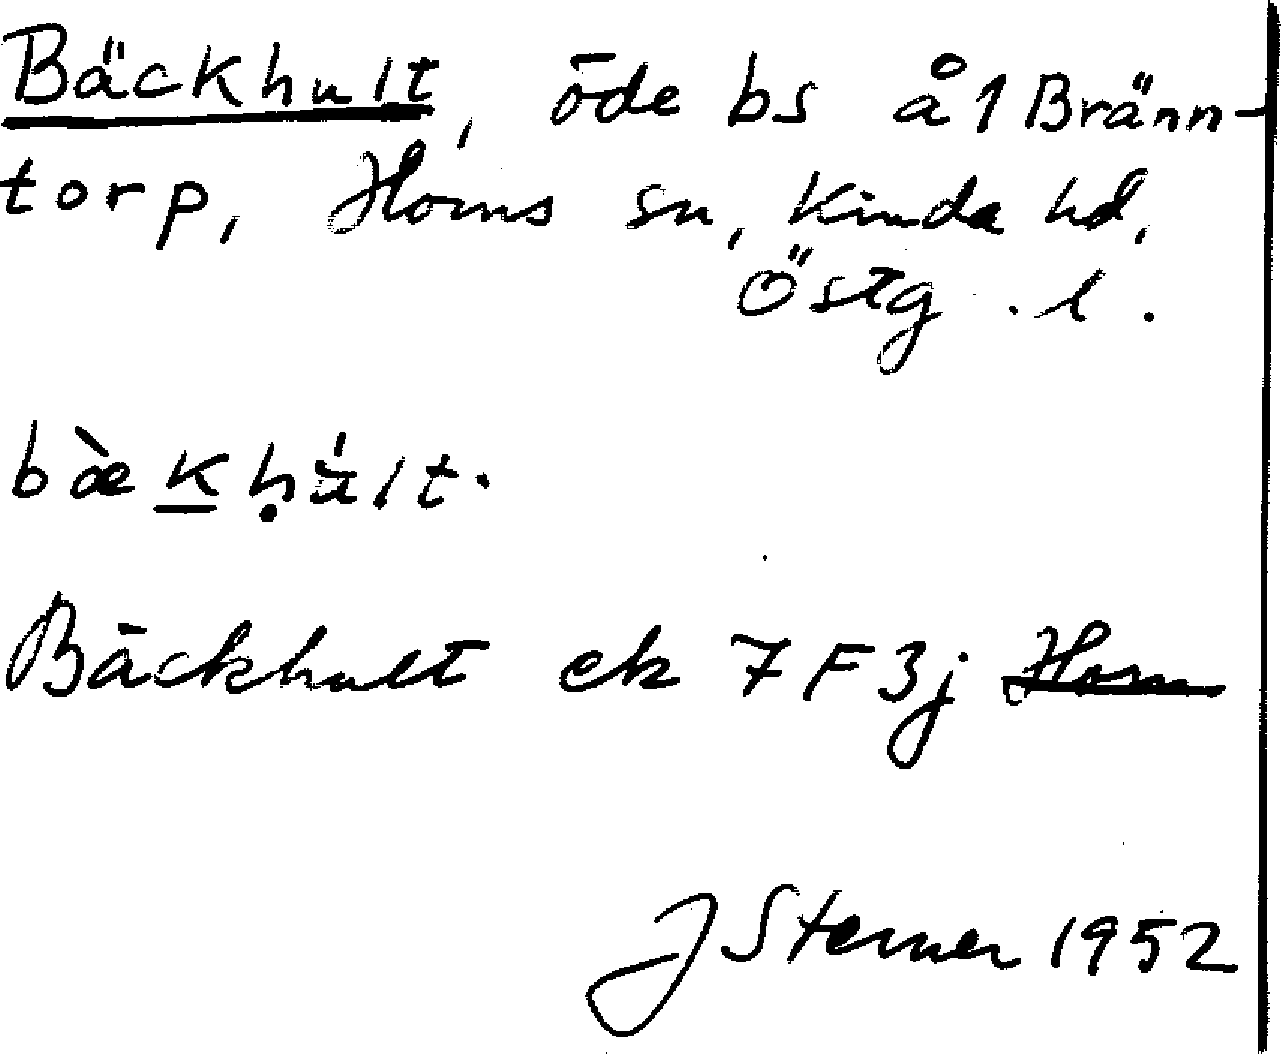 Bäckhult, öde bs å 1 Bränn-
torp, Horns sn, Kinda hd,
Östg. l.
bæ̀kḥúlt.
Bäckhult ek 7F3j Horn
J Sterner 1952